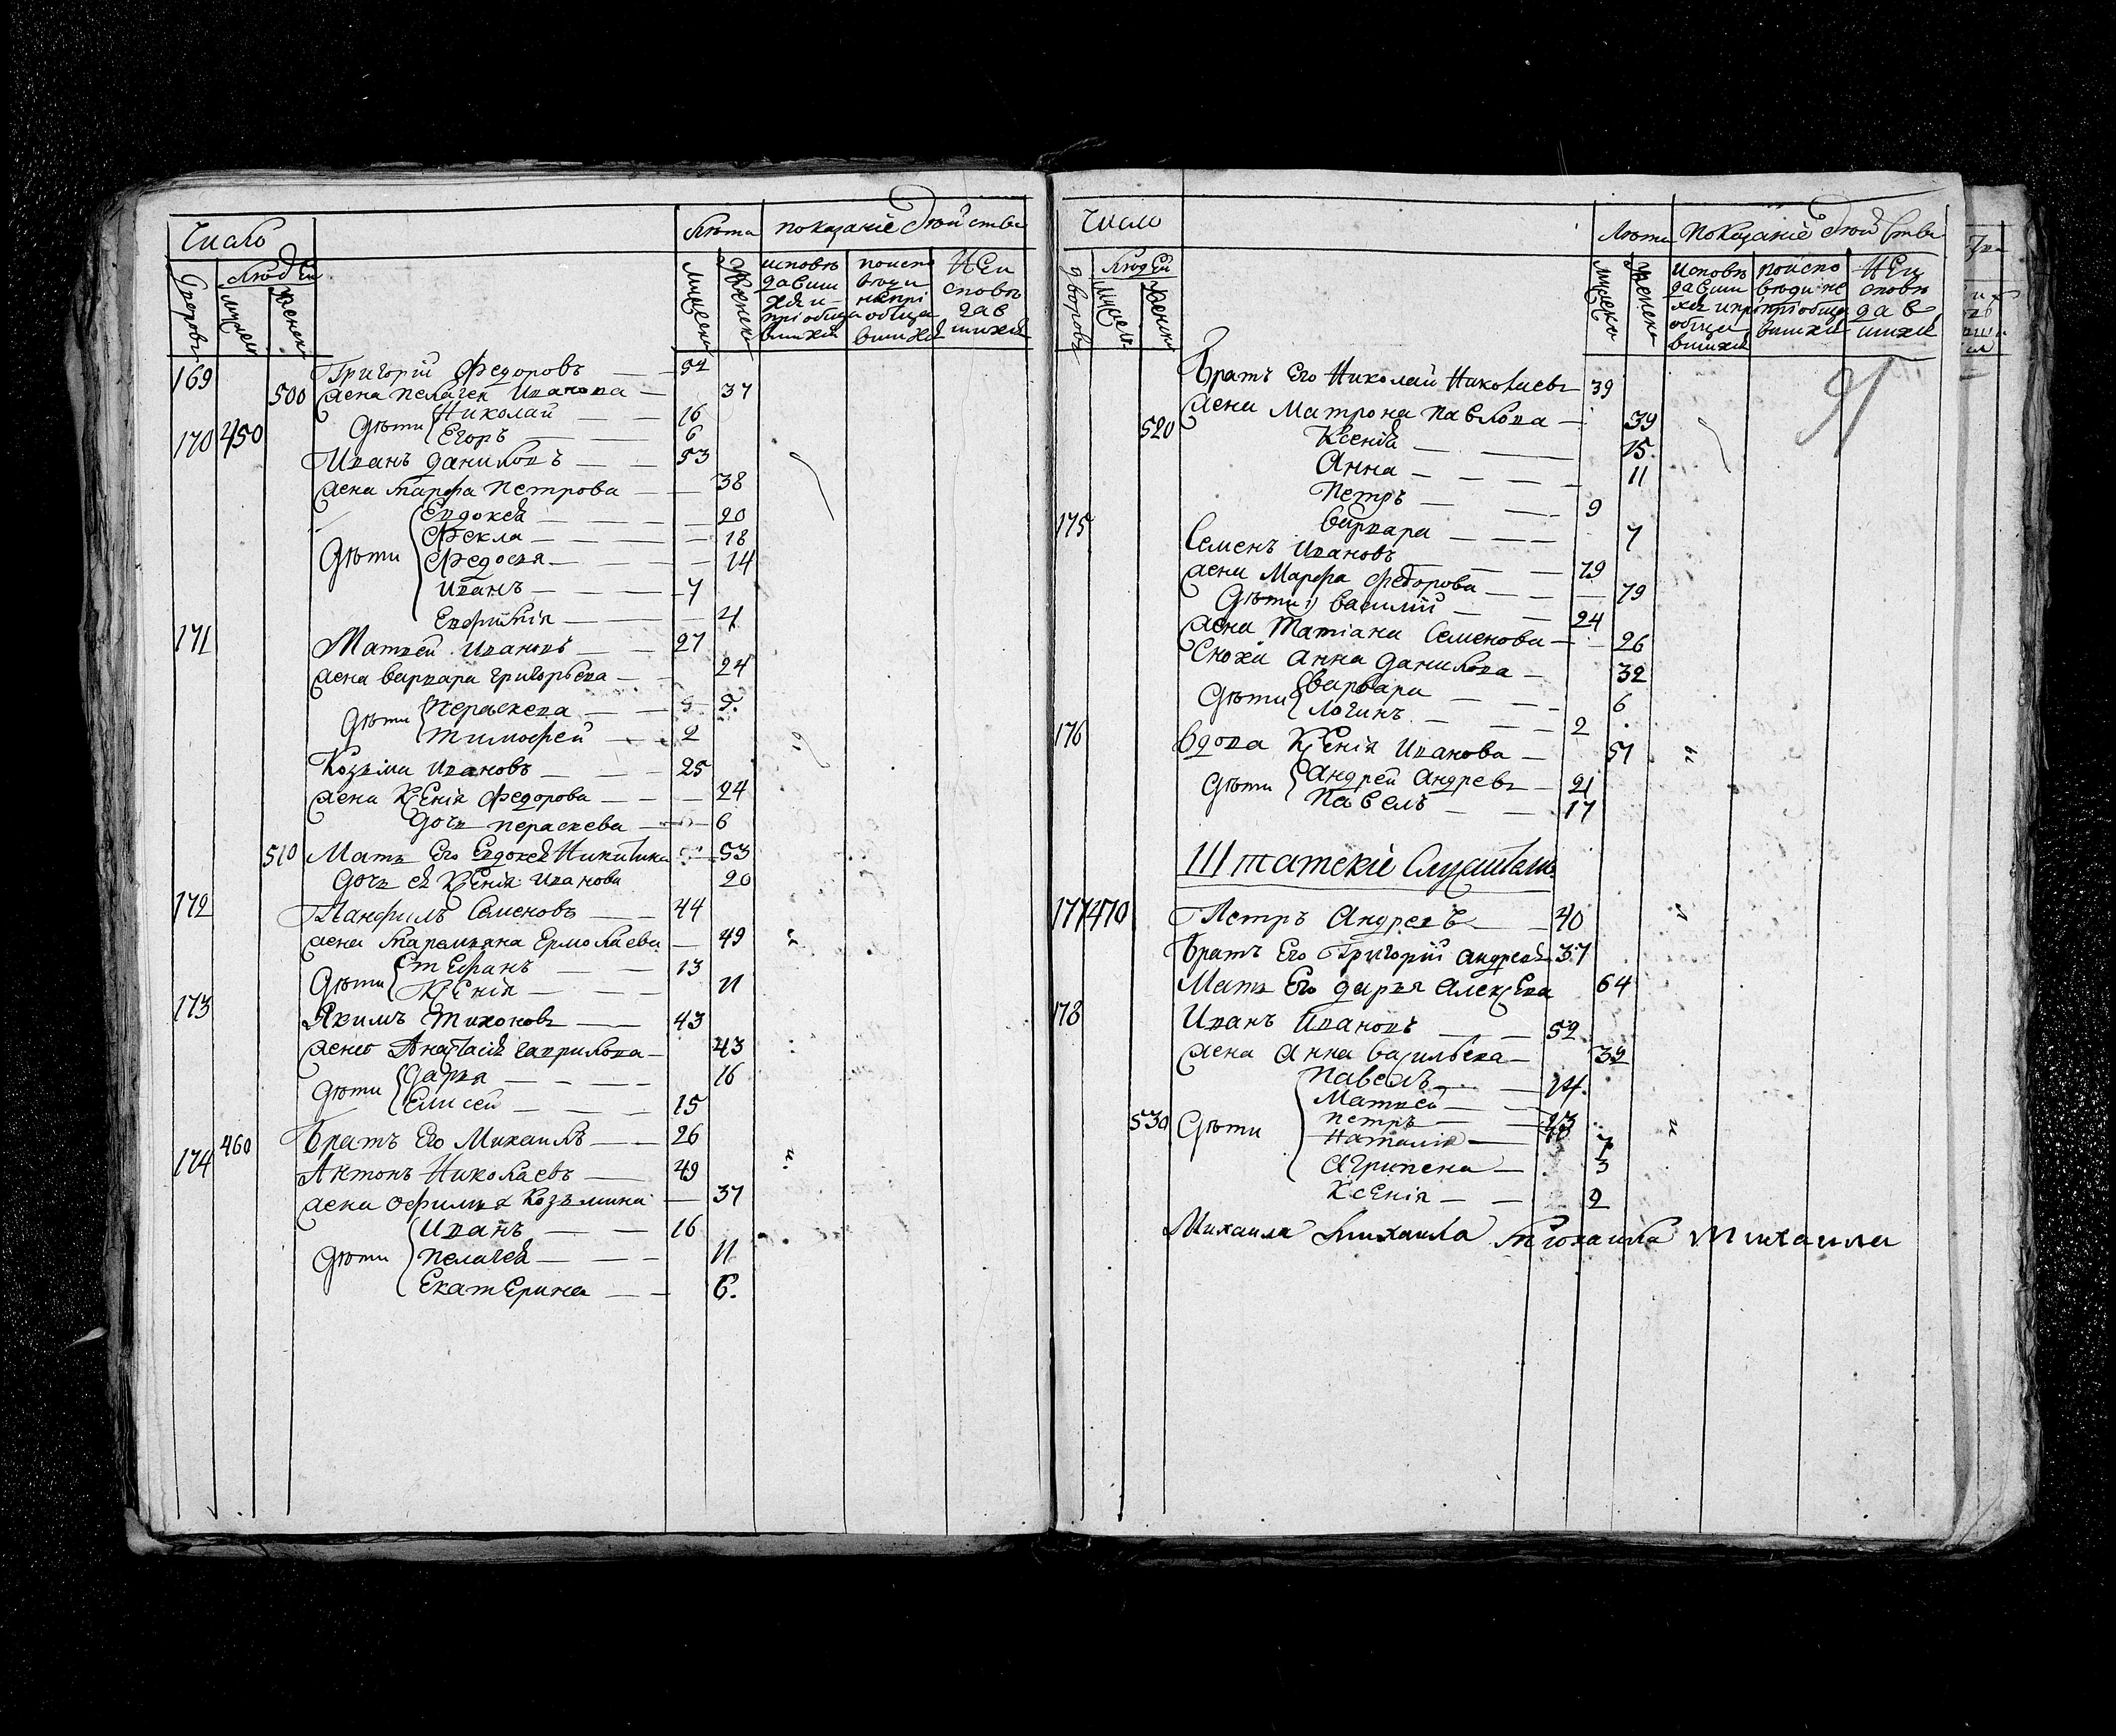 Число Лѣта показаніе дѣйства
дворовъ Людей мужск женск мужеск женск исповѣдавшихся и пріобщавшихся по исповѣди непріобщавшихся не исповѣдавшихся
169 Григорій Федоровъ — 52
500 жена пелагея Иванова — 37
дѣти Николай — 16
450 Егоръ — 6
170 Иванъ даниловъ — 53
жена марфа петрова — 38
Евдокея — 20
Фекла — 18
дѣти Федосья — 14
Иванъ — 7
Евфимія — 4
171 Матвей Ивановъ — 27
жена варвара григорьева — 24
дѣти Пераскева — 5
тимофей — 2
Козьма Ивановъ — 25
жена Ксенія федорова — 24
дочь пераскева — 6
510 Мать Его Евдокея Никитина 53
дочь ея Ксенія Иванова 20
172 Панфилъ Семеновъ — 44
жена Маремьяна Ермолаева — 49
дѣти Стефанъ — 13
Ксенія — 11
173 Якимъ тихоновъ — 43
жена Анастасія гаврилова — 43
дѣти дарья — 16
Елисей — 15
460 братъ Его Михаилъ — 26
174 Антонъ Николаевъ — 49
жена офимья Козьмина — 37
Иванъ — 16
дѣти пелагея — 11
Екатерина — 6.
Число Лѣта Показаніе дѣйства
дворовъ Людей мужск женск мужеск женск исповѣдавшихся и пріобщавшихся по исповѣди не пріобщавшихся не исповѣдавшихся
91
братъ Его Николай Николаевъ 39
жена Матрона павлова — 39
520 Ксенія — 15.
Анна — 11
Петръ — 9
варвара — 7
175 Семенъ Ивановъ — 79
жена Марфа федорова — 79
дѣти василій — 24
жена Татіана Семенова — 26
Сноха Анна данилова — 32
дѣти варвара — 6
Логинъ — 2
176 вдова Ксенія Иванова — 51
дѣти андрей андревъ — 21
павелъ — 17
Штатскіе Служители
177 470 Петръ Андреевъ — 40
братъ Его Григорій андреевъ 37
Мать Его дарья алексева 64
178 Иванъ Ивановъ — 52
жена анна васильева — 39
павелъ — 14.
Матвей — 13
530 дѣти петръ — 10
Наталія — 7
агрипена — 3
Ксенія — 2
Михаила Михаила Михаила Михаила